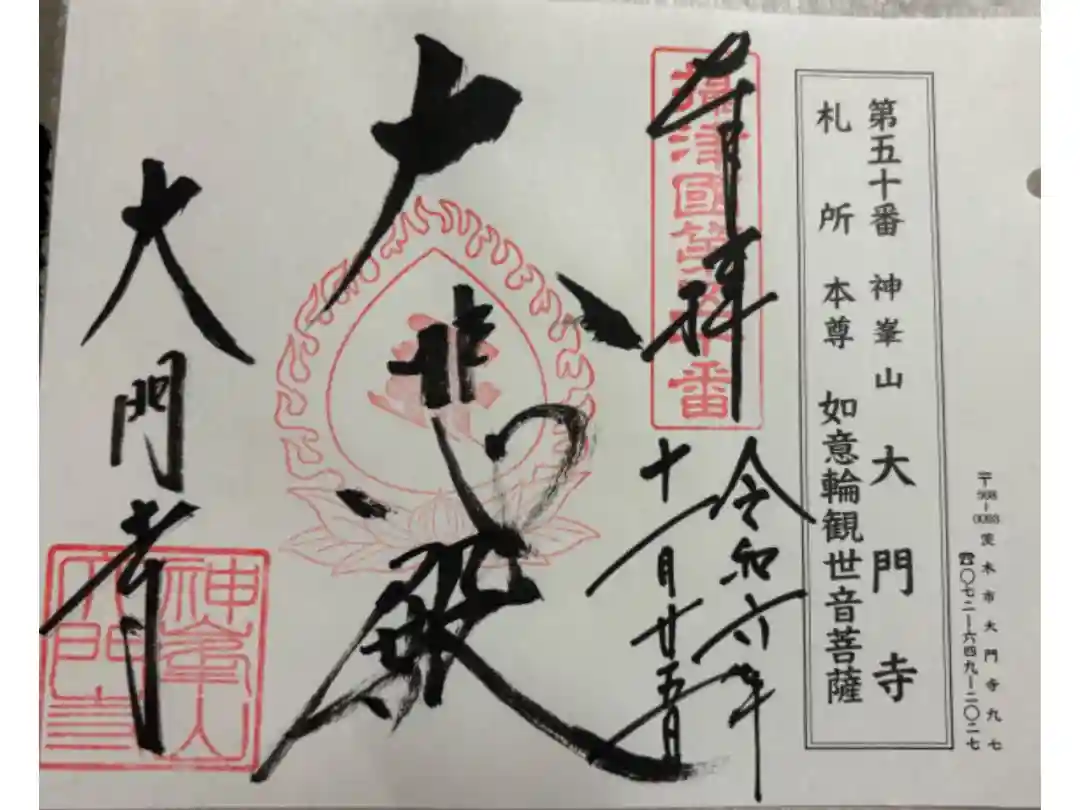 茨木市大門寺九七
☎〇七二ー六四九ー二〇二七
第五十番 神峯山 大門寺
札所 本尊 如意輪観世音菩薩
奉拝
攝津國第五十番
令和六年
十一月廿五日
大悲殿
大門寺
神峯山
大門寺